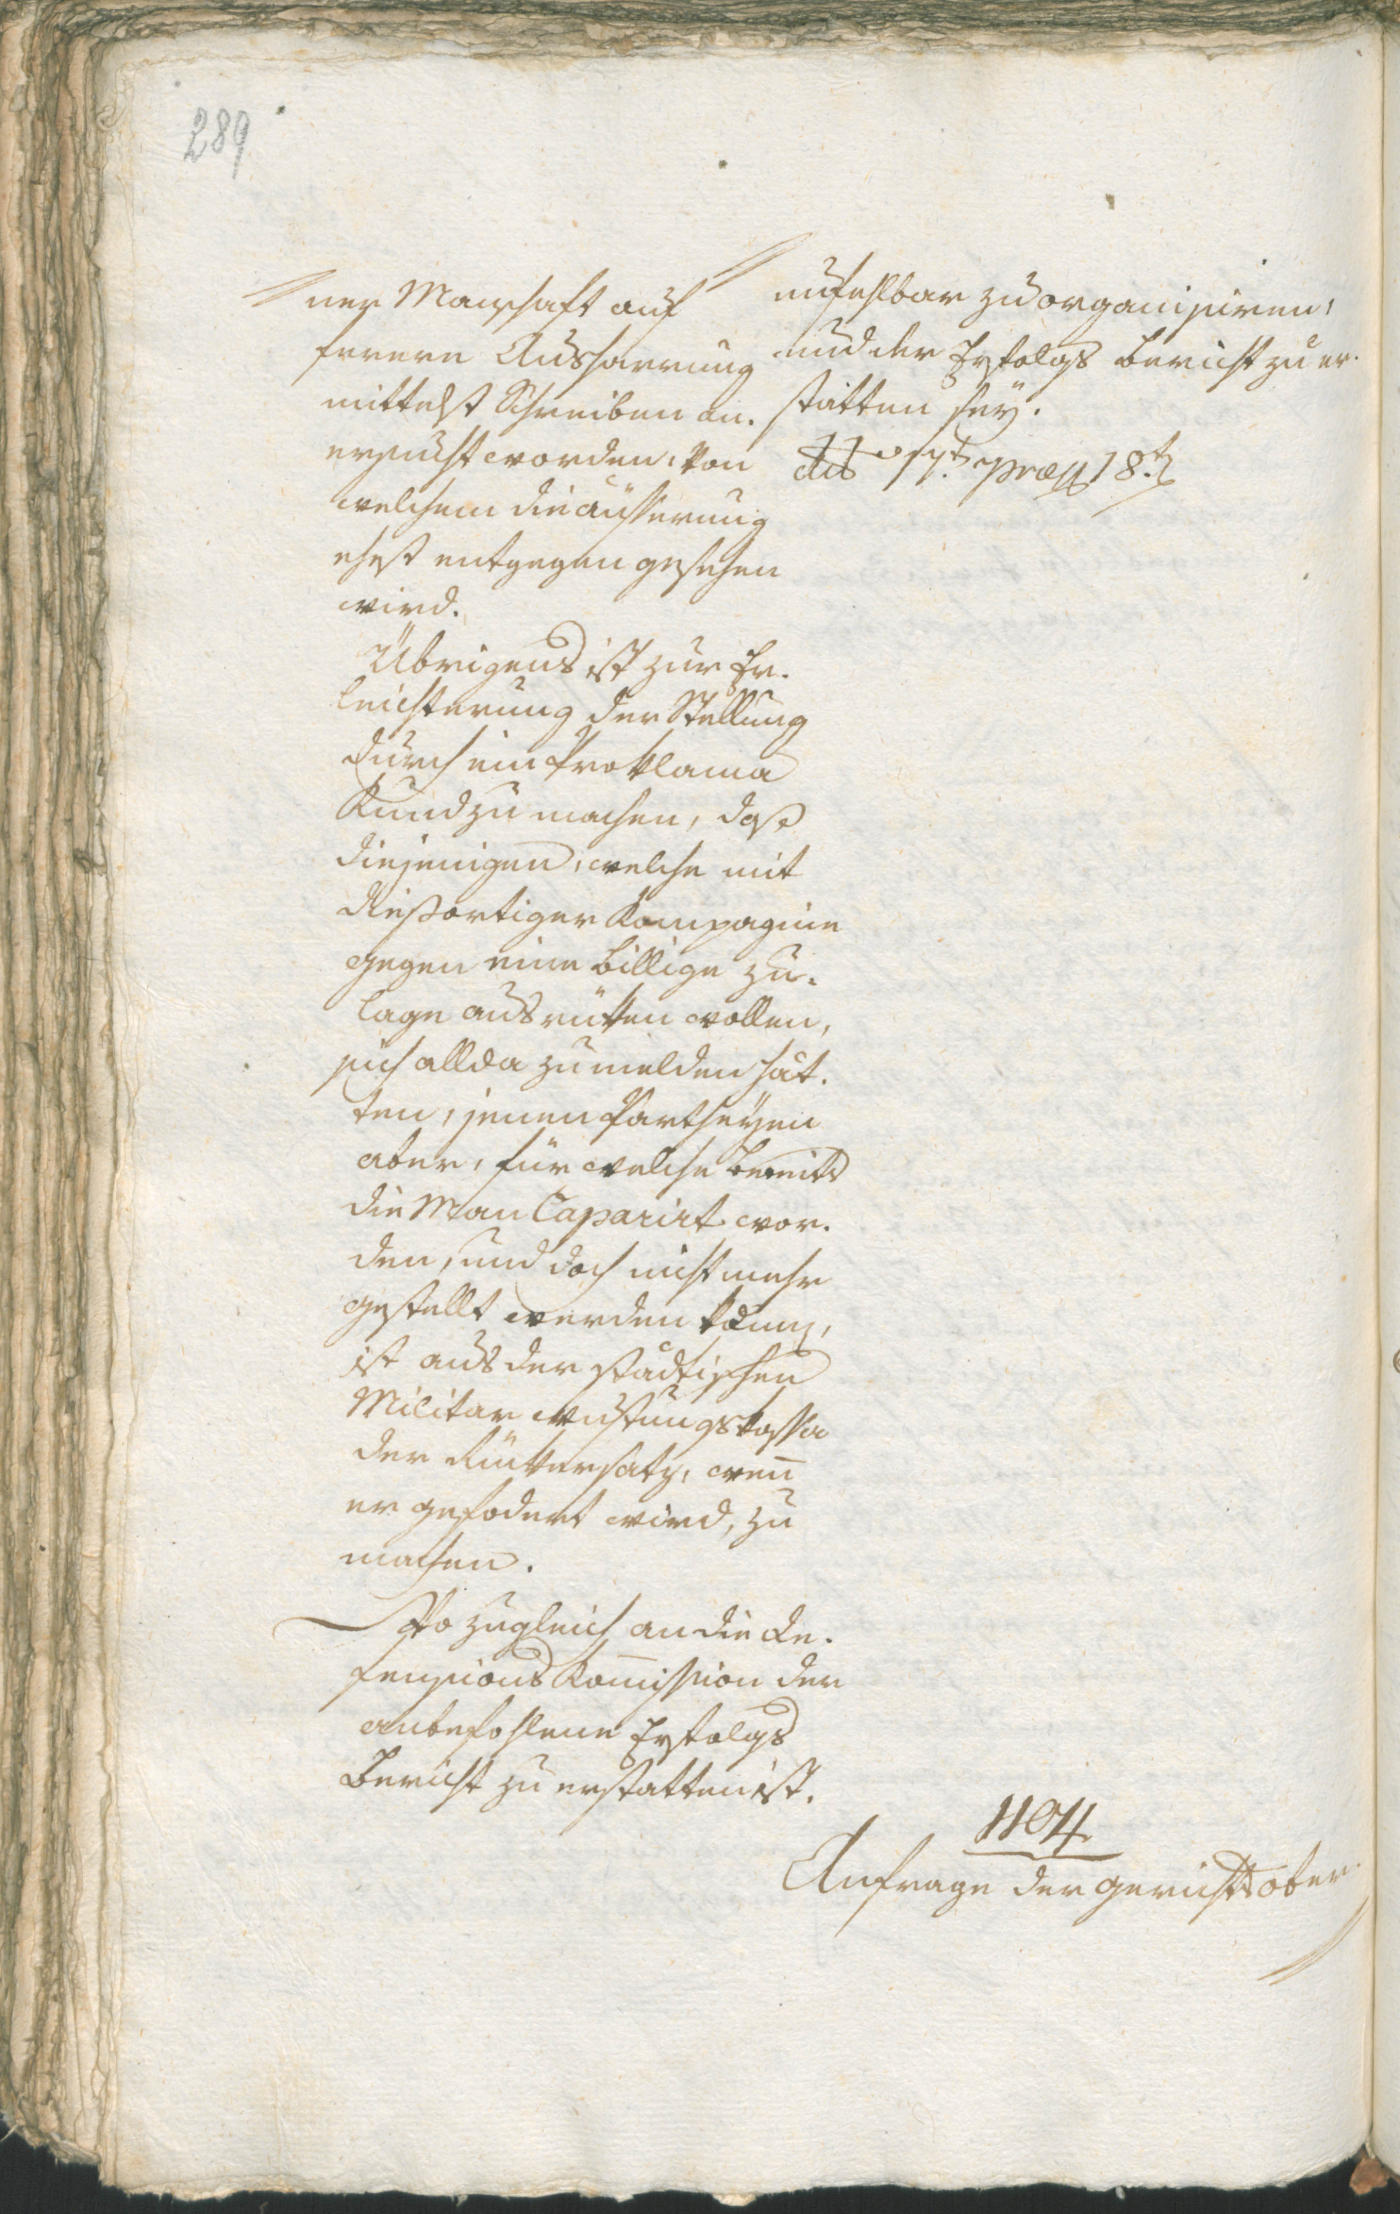 289
ner Manschaft auf
fernere Ausharrung
mittelst Schreiben an.
ersucht worden, von
welchem die äusserung
ehest entgegen gesehen
wird.
Übrigens ist zur Er.
leichterung der Stellung
durch ein Proklama
Kund zu machen, daß
diejenigen, welche mit
dießortiger Kompagnie
gegen eine billige Zu.
lage ausrücken wollen,
sich allda zu melden hät.
ten, jenen Partheyen
aber, für welche bereits
die Man Caparirt wor.
den, und doch nicht mehr
gestellt werden kann,
ist aus der städtischen
Militar rustungskassa
der Rückersatz, wen̄
er gefodert wird, zu
machen.
Wo zugleich an die De.
fensions Kom̄ission der
anbefohlene Erfolgs
Bericht zu erstatten ist.
unfehlbar zu organisiren,
und der Erfolgs bericht zu er.
statten sey.
dto 17t. præss 18.t
1194
Anfrage der gerichts ober.